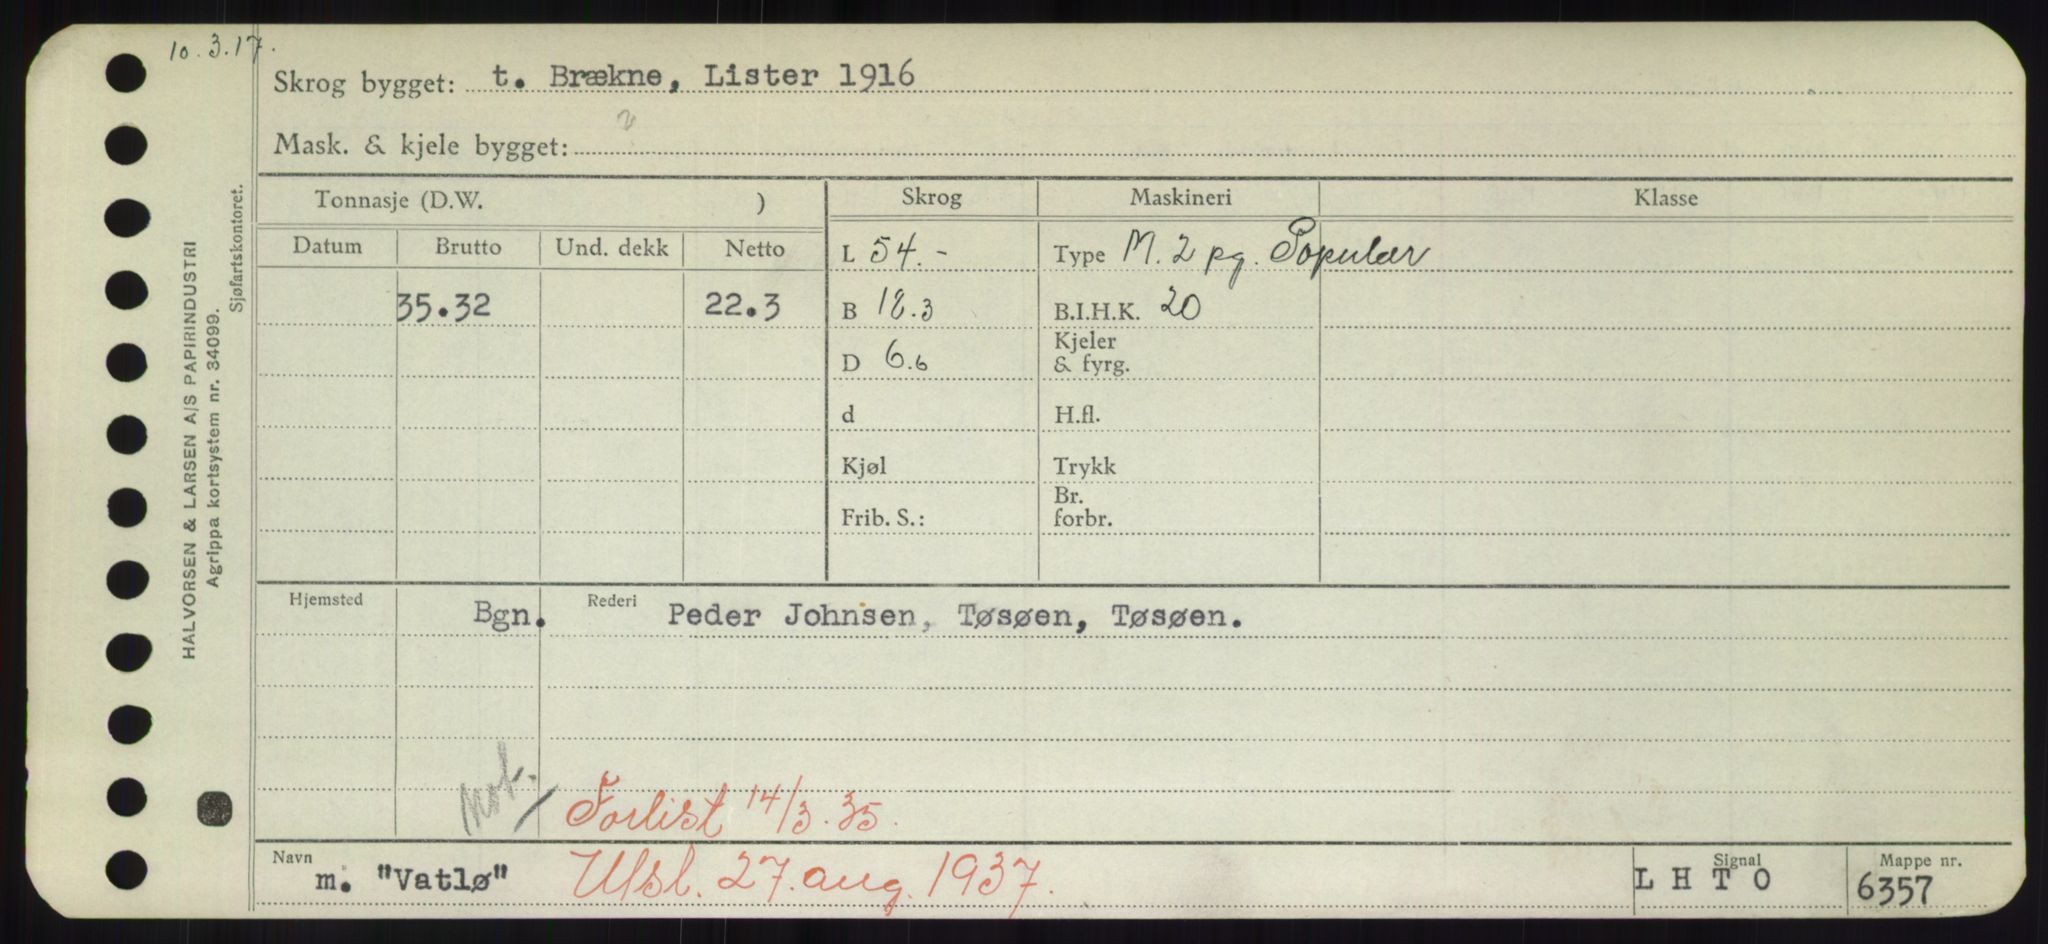 10.3.17.
Skrog bygget: t. Brækne, Lister 1916
Mask. & kjele bygget:
Tonnasje (D.W. )
Skrog
Maskineri
Klasse
Datum
Brutto
Und. dekk
Netto
L 54.-
Type M. 2 pg. Populær
35.32
22.3
B 18.3
B.I.H.K. 20
D 6.6
Kjeler
& fyrg.
d
H.fl.
Kjøl
Trykk
Frib. S.:
Br.
forbr.
Hjemsted Bgn. Rederi Peder Johnsen, Tøsøen, Tøsøen.
Not.
Forlist 14/3.35.
Navn m. "Vatlø"
Utsl. 27. aug. 1937.
Signal
L H T O
Mappe nr.
6357
HALVORSEN & LARSEN A/S PAPIRINDUSTRI
Agrippa kortsystem nr. 34099.
Sjøfartskontoret.